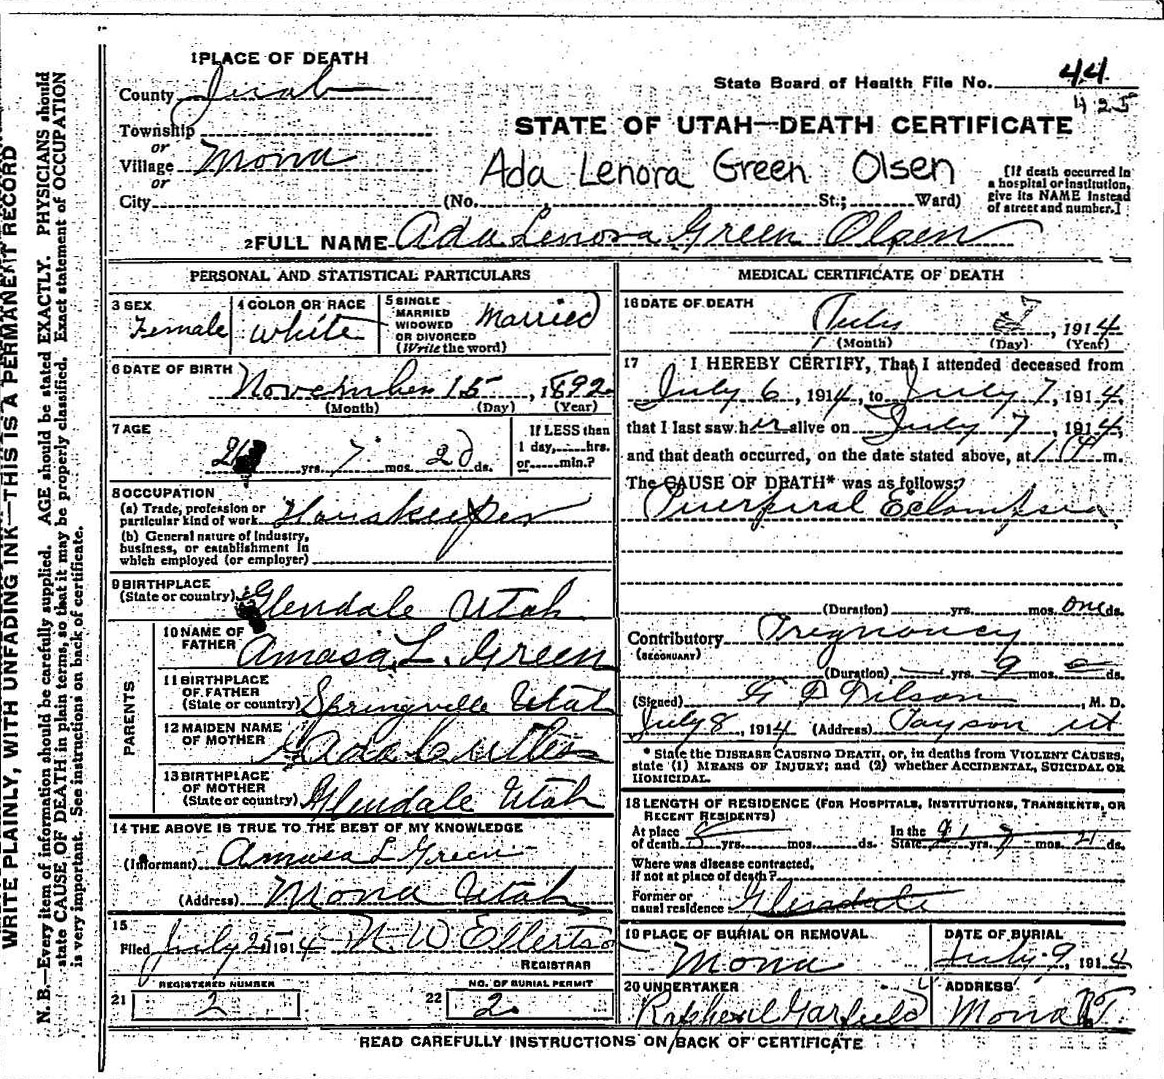 1 PLACE OF DEATH
County Juab
State Board of Health File No. 44
425
Township
or
Village Mona
or
City
STATE OF UTAH—DEATH CERTIFICATE
Ada Lenora Green Olsen
(No. St.; Ward)
[If death occurred in
a hospital or institution,
give its NAME instead
of street and number.]
2 FULL NAME Ada Lenora Green Olsen
PERSONAL AND STATISTICAL PARTICULARS
3 SEX
Female
4 COLOR OR RACE
White
5 SINGLE
MARRIED
WIDOWED
OR DIVORCED
(Write the word)
Married
6 DATE OF BIRTH
November 15, 1892
(Month) (Day) (Year)
7 AGE
yrs. 7 mos. ds.
If LESS than
1 day, hrs.
or min.?
8 OCCUPATION
(a) Trade, profession or
particular kind of work Houskeeper
(b) General nature of Industry,
business, or establishment in
which employed (or employer)
9 BIRTHPLACE
(State or country) Glendale Utah
PARENTS
10 NAME OF
FATHER Amasa L. Green
11 BIRTHPLACE
OF FATHER
(State or country) Springville Utah
12 MAIDEN NAME
OF MOTHER Ada Cutler
13 BIRTHPLACE
OF MOTHER
(State or country) Glendale Utah
14 THE ABOVE IS TRUE TO THE BEST OF MY KNOWLEDGE
(Informant) Amasa L Green
(Address) Mona Utah
15
Filed July 25 1914 W Ellertso
REGISTRAR
REGISTERED NUMBER
21 2
NO. OF BURIAL PERMIT
22 2
MEDICAL CERTIFICATE OF DEATH
16 DATE OF DEATH
July 7, 1914
(Month) (Day) (Year)
17 I HEREBY CERTIFY, That I attended deceased from
July 6, 1914, to July 7, 1914,
that I last saw her alive on July 7, 1914,
and that death occurred, on the date stated above, at m.
The CAUSE OF DEATH* was as follows:
Puerpiral Eclampsia
(Duration) yrs. mos. one ds.
Contributory Pregnancy
(SECONDARY)
(Duration) yrs. 9 mos. ds.
(Signed) Wilson M. D.
July 8, 1914 (Address) Payson Ut
* State the DISEASE CAUSING DEATH, or, in deaths from VIOLENT CAUSES,
state (1) MEANS OF INJURY; and (2) whether ACCIDENTAL, SUICIDAL OR
HOMICIDAL.
18 LENGTH OF RESIDENCE (FOR HOSPITALS, INSTITUTIONS, TRANSIENTS, OR
RECENT RESIDENTS)
At place
of death yrs. mos. ds.
In the
State 21 yrs. 7 mos. 21 ds.
Where was disease contracted,
if not at place of death?
Former or
usual residence Glendale
19 PLACE OF BURIAL OR REMOVAL
Mona
DATE OF BURIAL
July 9, 1914
20 UNDERTAKER
Garfield
ADDRESS
Mona
READ CAREFULLY INSTRUCTIONS ON BACK OF CERTIFICATE
WRITE PLAINLY, WITH UNFADING INK—THIS IS A PERMANENT RECORD
N. B.—Every item of information should be carefully supplied. AGE should be stated EXACTLY. PHYSICIANS should
state CAUSE OF DEATH in plain terms, so that it may be properly classified. Exact statement of OCCUPATION
is very important. See instructions on back of certificate.